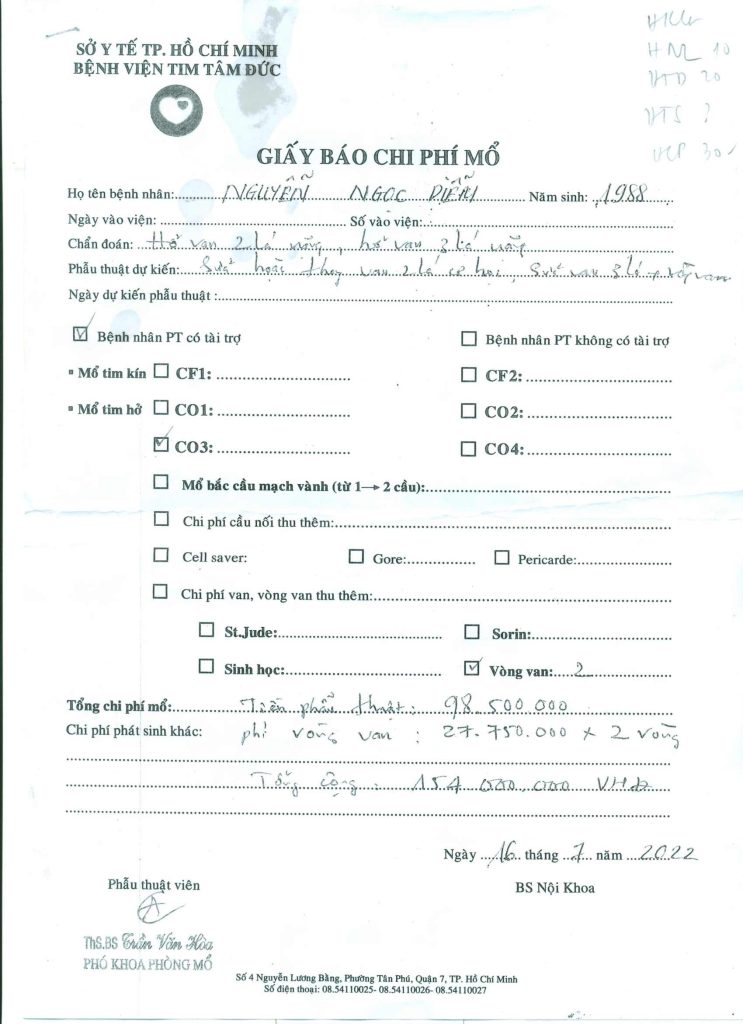 HM 10
HTD 20
HTS ?
VCP 30
SỞ Y TẾ TP. HỒ CHÍ MINH
BỆNH VIỆN TIM TÂM ĐỨC
GIẤY BÁO CHI PHÍ MỔ
Họ tên bệnh nhân: NGUYỄN NGỌC DIỄM Năm sinh: 1988
Ngày vào viện: Số vào viện:
Chẩn đoán: Hở van 2 lá nặng, hở van 3 lá nặng
Phẫu thuật dự kiến: Sửa hoặc thay van 2 lá cơ học, Sửa van 3 lá + vòng van
Ngày dự kiến phẫu thuật :
☑ Bệnh nhân PT có tài trợ ☐ Bệnh nhân PT không có tài trợ
▪ Mổ tim kín ☐ CF1: ☐ CF2:
▪ Mổ tim hở ☐ CO1: ☐ CO2:
☑ CO3: ☐ CO4:
☐ Mổ bắc cầu mạch vành (từ 1→ 2 cầu):
☐ Chi phí cầu nối thu thêm:
☐ Cell saver: ☐ Gore: ☐ Pericarde:
☐ Chi phí van, vòng van thu thêm:
☐ St.Jude: ☐ Sorin:
☐ Sinh học: ☑ Vòng van: 2
Tổng chi phí mổ: Tiền phẫu thuật: 98.500.000
Chi phí phát sinh khác: phí vòng van : 27.750.000 x 2 vòng
Tổng cộng : 154.000.000 VNĐ
Ngày 16 tháng 7 năm 2022
Phẫu thuật viên BS Nội Khoa
ThS.BS Trần Văn Hòa
PHÓ KHOA PHÒNG MỔ
Số 4 Nguyễn Lương Bằng, Phường Tân Phú, Quận 7, TP. Hồ Chí Minh
Số điện thoại: 08.54110025- 08.54110026- 08.54110027